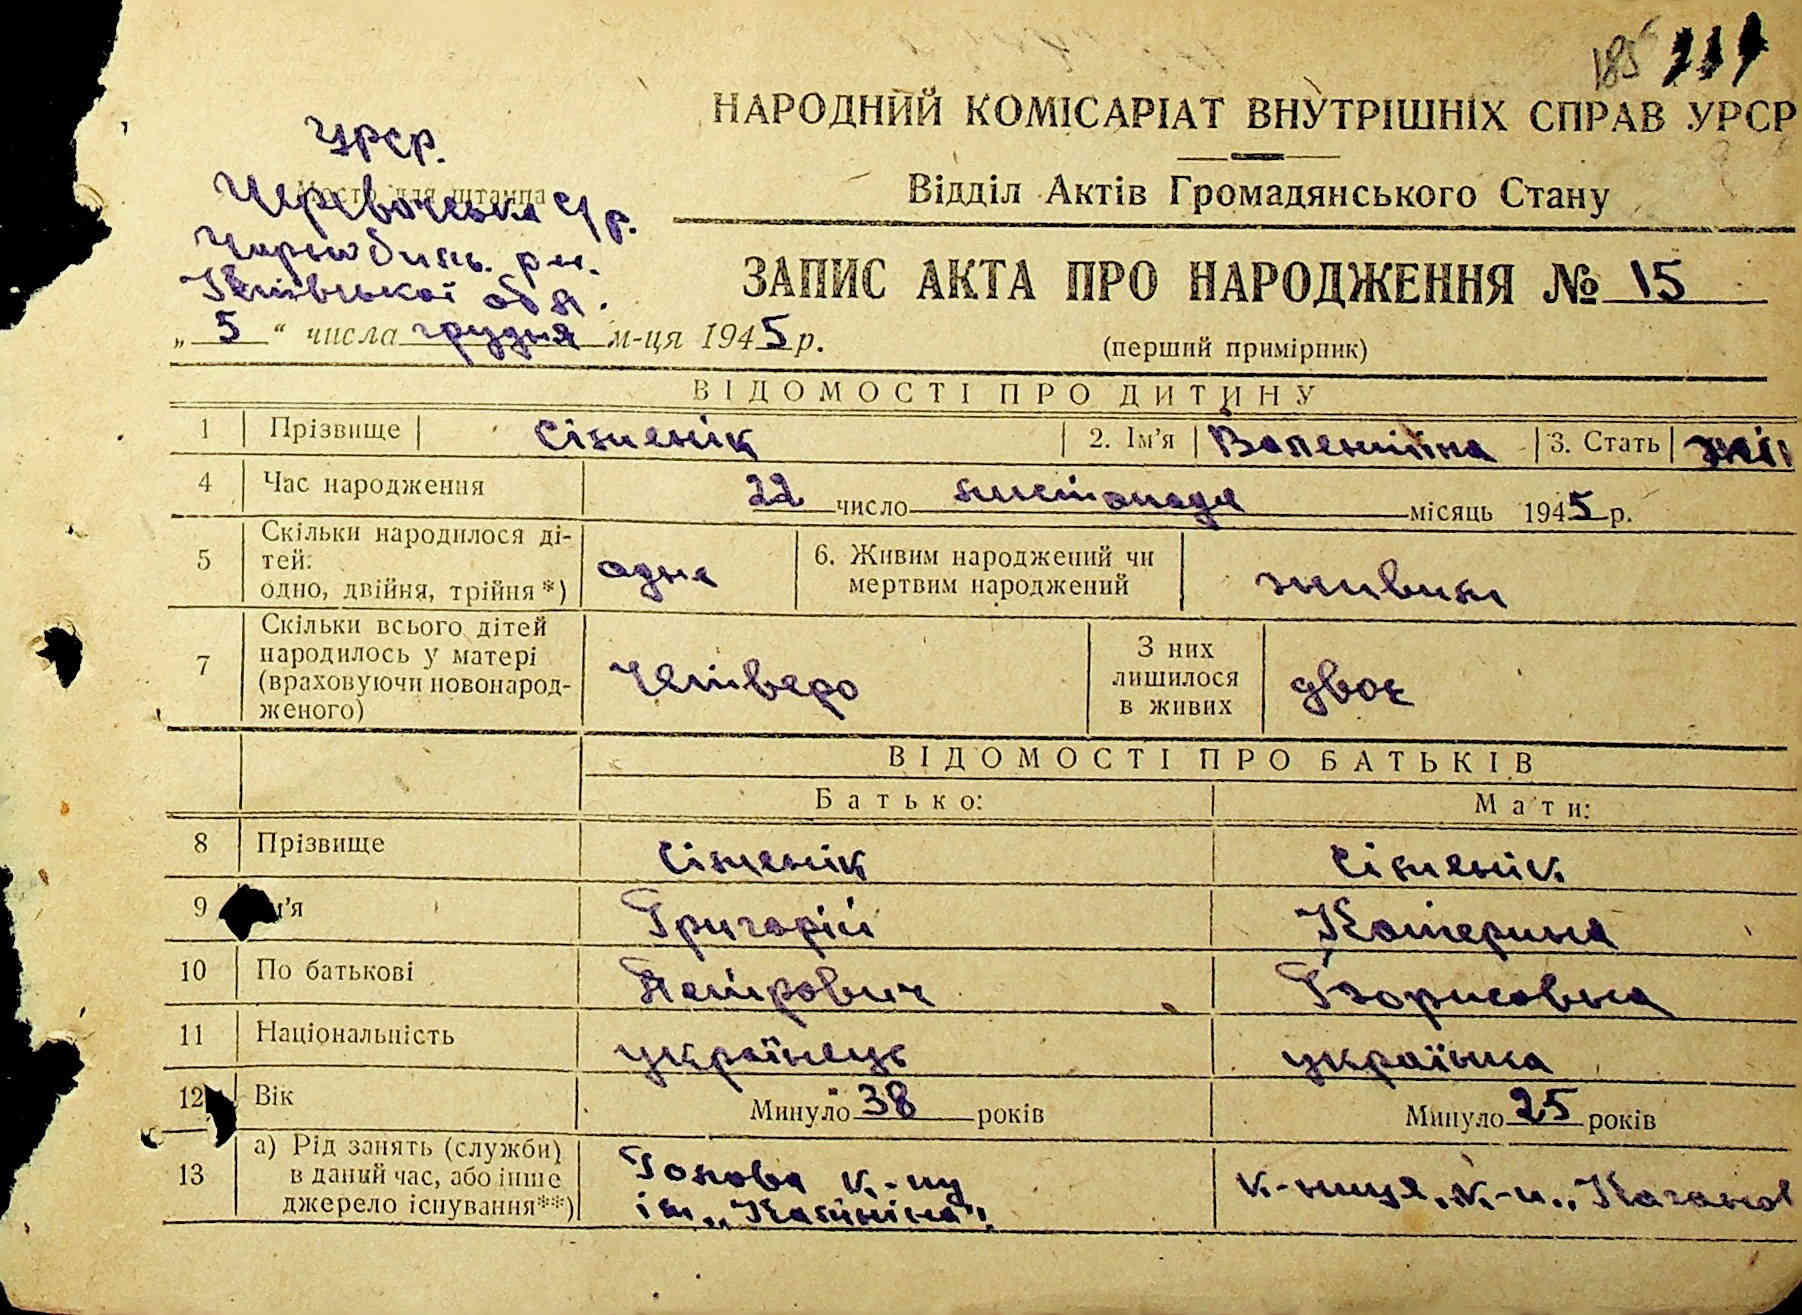 185
НАРОДНИЙ КОМІСАРІАТ ВНУТРІШНІХ СПРАВ УРСР
Відділ Актів Громадянського Стану
УРСР.
Місце для штампа
с/р.
Чорнобильс. р-н.
Київської обл.
ЗАПИС АКТА ПРО НАРОДЖЕННЯ № 15
„ 5 “ числа грудня м-ця 1945 р.
(перший примірник)
ВІДОМОСТІ ПРО ДИТИНУ
1 Прізвище 2. Ім’я Валентіна 3. Стать жін
4 Час народження 22 число листопада місяць 1945 р.
5 Скільки народилося ді-
тей:
одно, двійня, трійня *) одна
6. Живим народжений чи
мертвим народжений живим
7 Скільки всього дітей
народилось у матері
(враховуючи новонарод-
женого) четверо
З них
лишилося
в живих двоє
ВІДОМОСТІ ПРО БАТЬКІВ
Батько: Мати:
8 Прізвище
9 м’я Григорій Катерина
10 По батькові Петрович Борисовна
11 Національність українець українка
12 Вік Минуло 38 років Минуло 25 років
13 а) Рід занять (служби)
в даний час, або інше
джерело існування**)
Голова к-пу
ім. „Калініна“
к-ниця, к-п.,, Каганов